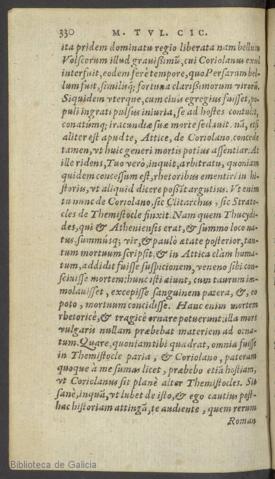 330 M. TVL. CIC.
ita pridem dominatu regio liberata nam bellum
Volscorum illud grauißimũ, cui Coriolanus exul
interfuit, eodem ferè tempore, quo Persarum bel-
lum fuit, similiq́; fortuna clarißimorum virorũ.
Siquidem vterque, cum ciuis egregius fuisset, po-
puli ingrati pulsus iniuria, se ad hostes contulit,
conatumq́; iracundiæ suæ morte sedauit. nã, etsi
aliter est apud te, Attice, de Coriolano, concede
tamen, vt huic generi mortis potius assentiar. At
ille ridens, Tuo verò, inquit, arbitratu, quoniam
quidem concessum est, rhetoribus ementiri in hi-
storijs, vt aliquid dicere poßĩt argutius. Vt enim
tu nunc de Coriolano, sic Clitarchus, sic Strato-
cles de Themistocle finxit. Nam quem Thucydi-
des, qui & Atheniensis erat, & summo loco na-
tus, summusq́; vir, & paulò ætate posterior, tan-
tum mortuum scripsit, & in Attica clàm huma-
tum, addidit fuisse suspicionem, veneno sibi con-
sciuisse mortem: hunc isti aiunt, cum taurum im-
molauisset, excepisse sanguinem patera, & eo
poto, mortuum concidisse. Hanc enim mortem
rhetoricè, & tragicè ornare potuerunt: illa mors
vulgaris nullam præbebat materiem ad orna-
tum. Quare, quoniam tibi quadrat, omnia fuisse
in Themistocle paria, & Coriolano, pateram
quoque à me sumas licet, præbebo etiã hostiam,
vt Coriolanus sit planè alter Themistocles. Sit
sanè, inquã, vt lubet de isto, & ego cautius post-
hac historiam attingã, te audiente, quem rerum
Roman
Biblioteca de Galicia